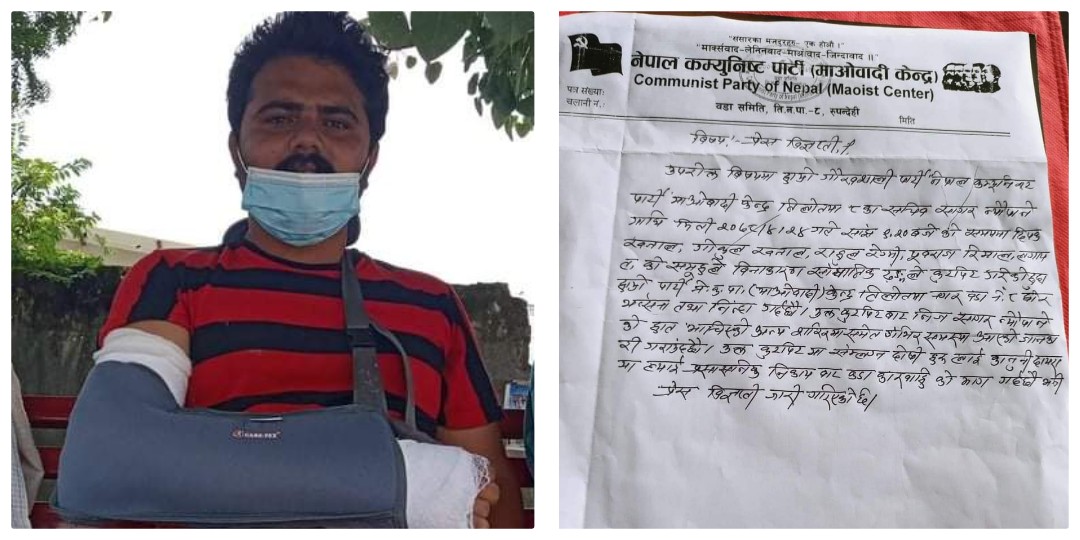 CARE-TEX
"संसारका मजदुरहरु- एक होऔं !"
"मार्क्सवाद-लेनिनवाद-माओवाद-जिन्दावाद ॥"
नेपाल कम्युनिष्ट पार्टी (माओवादी केन्द्र)
Communist Party of Nepal (Maoist Center)
वडा समिति, ति.न.पा.-८, रुपन्देही
पत्र संख्याः
चलानी न.ः
मिति
विषय:- प्रेस विज्ञप्ती ।
उपरोक्त बिषयमा हाम्रो गौरवशाली पार्टी नेपाल कम्युनिस्ट
पार्टी माओवादी केन्द्र तिलोत्तमा ८ का सचिव सागर न्यौपाने
माथि मिती २०७८/४/२४ गते साझ ९.२० बजे को समयमा दिपक
खनाल, गोकुल खनाल, राहुल रेग्मी, प्रकाश रिमाल, लगायत
को समुहले बिनाकारण कुटपिट गरेको हुदा
पार्टी ने.क.पा. (माओवादी) केन्द्र तिलोत्तमा नगर वडा नं. ८ घोर
भर्त्सना तथा निन्दा गर्दछौ। उक्त कुटपिट बाट निज सागर न्यौपाने
को हात भाचिएको अन्य गम्भिर समस्या आएको जानका
री गराउदछौ। उक्त कुटपिट मा संलग्न दोषी हरु लाई कानुनी दायरा
मा ल्याई प्रसासनिक निकाय बाट कडा कारवाही को माग गर्दछौ भनी
प्रेस विज्ञप्ती जारी गरिएको छ।